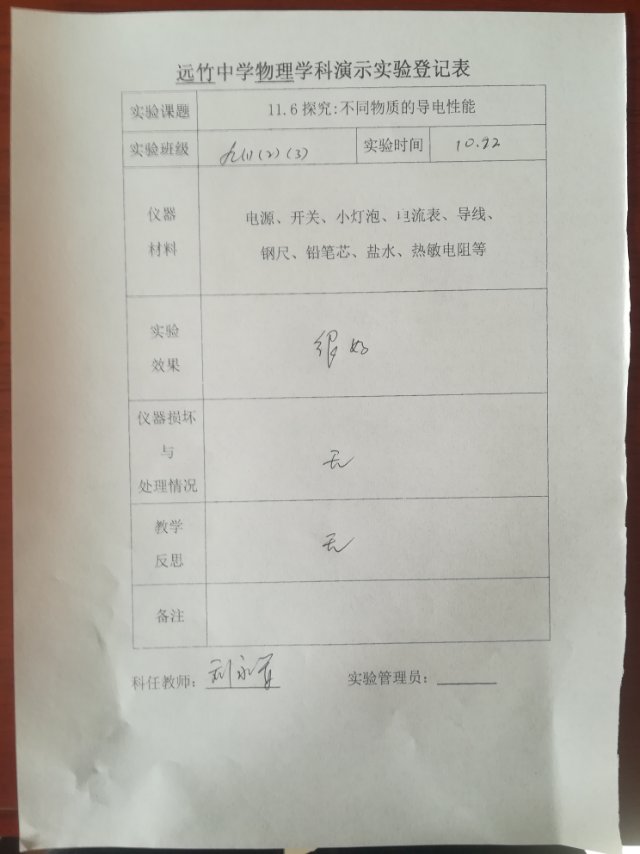 远竹中学物理学科演示实验登记表
实验课题 11.6 探究:不同物质的导电性能
实验班级 九(1)(2)(3) 实验时间 10.22
仪器 电源、开关、小灯泡、电流表、导线、
材料 钢尺、铅笔芯、盐水、热敏电阻等
实验
效果
很好
仪器损坏
与
处理情况
无
教学
反思
无
备注
科任教师: 刘永 实验管理员: